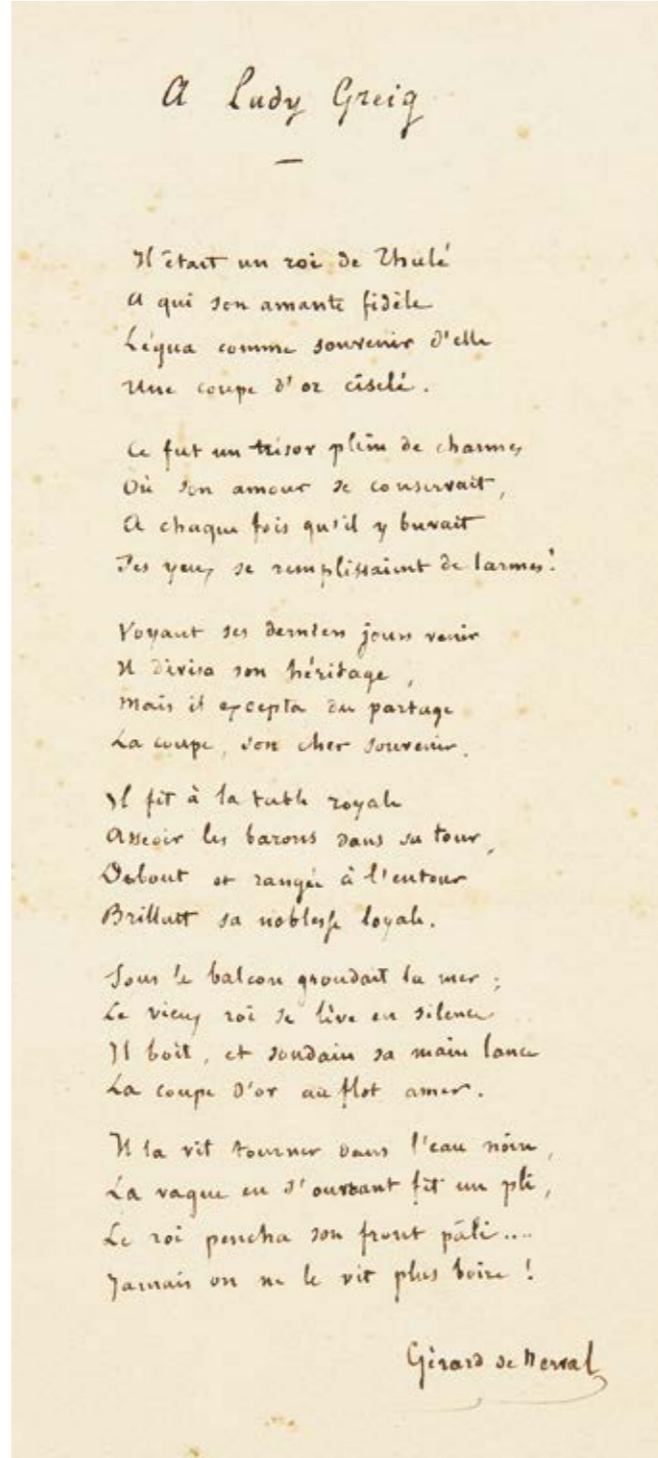 A Lady Greig
—
Il était un roi de Thulé
A qui son amante fidèle
Légua comme souvenir d'elle
Une coupe d'or ciselé.
Ce fut un trésor plein de charmes
Où son amour se conservait,
A chaque fois qu'il y buvait
Ses yeux se remplissaient de larmes!
Voyant ses derniers jours venir
Il divisa son héritage,
Mais il excepta du partage
La coupe, son cher souvenir.
Il fit à la table royale
Asseoir les barons dans sa tour,
Debout et rangée à l'entour
Brillait sa noblesse loyale.
Sous le balcon grondait la mer;
Le vieux roi se lève en silence
Il boit, et soudain sa main lance
La coupe d'or au flot amer.
Il la vit tourner dans l'eau noire,
La vague en s'ouvrant fit un pli,
Le roi pencha son front pâli....
Jamais on ne le vit plus boire!
Gérard de Nerval